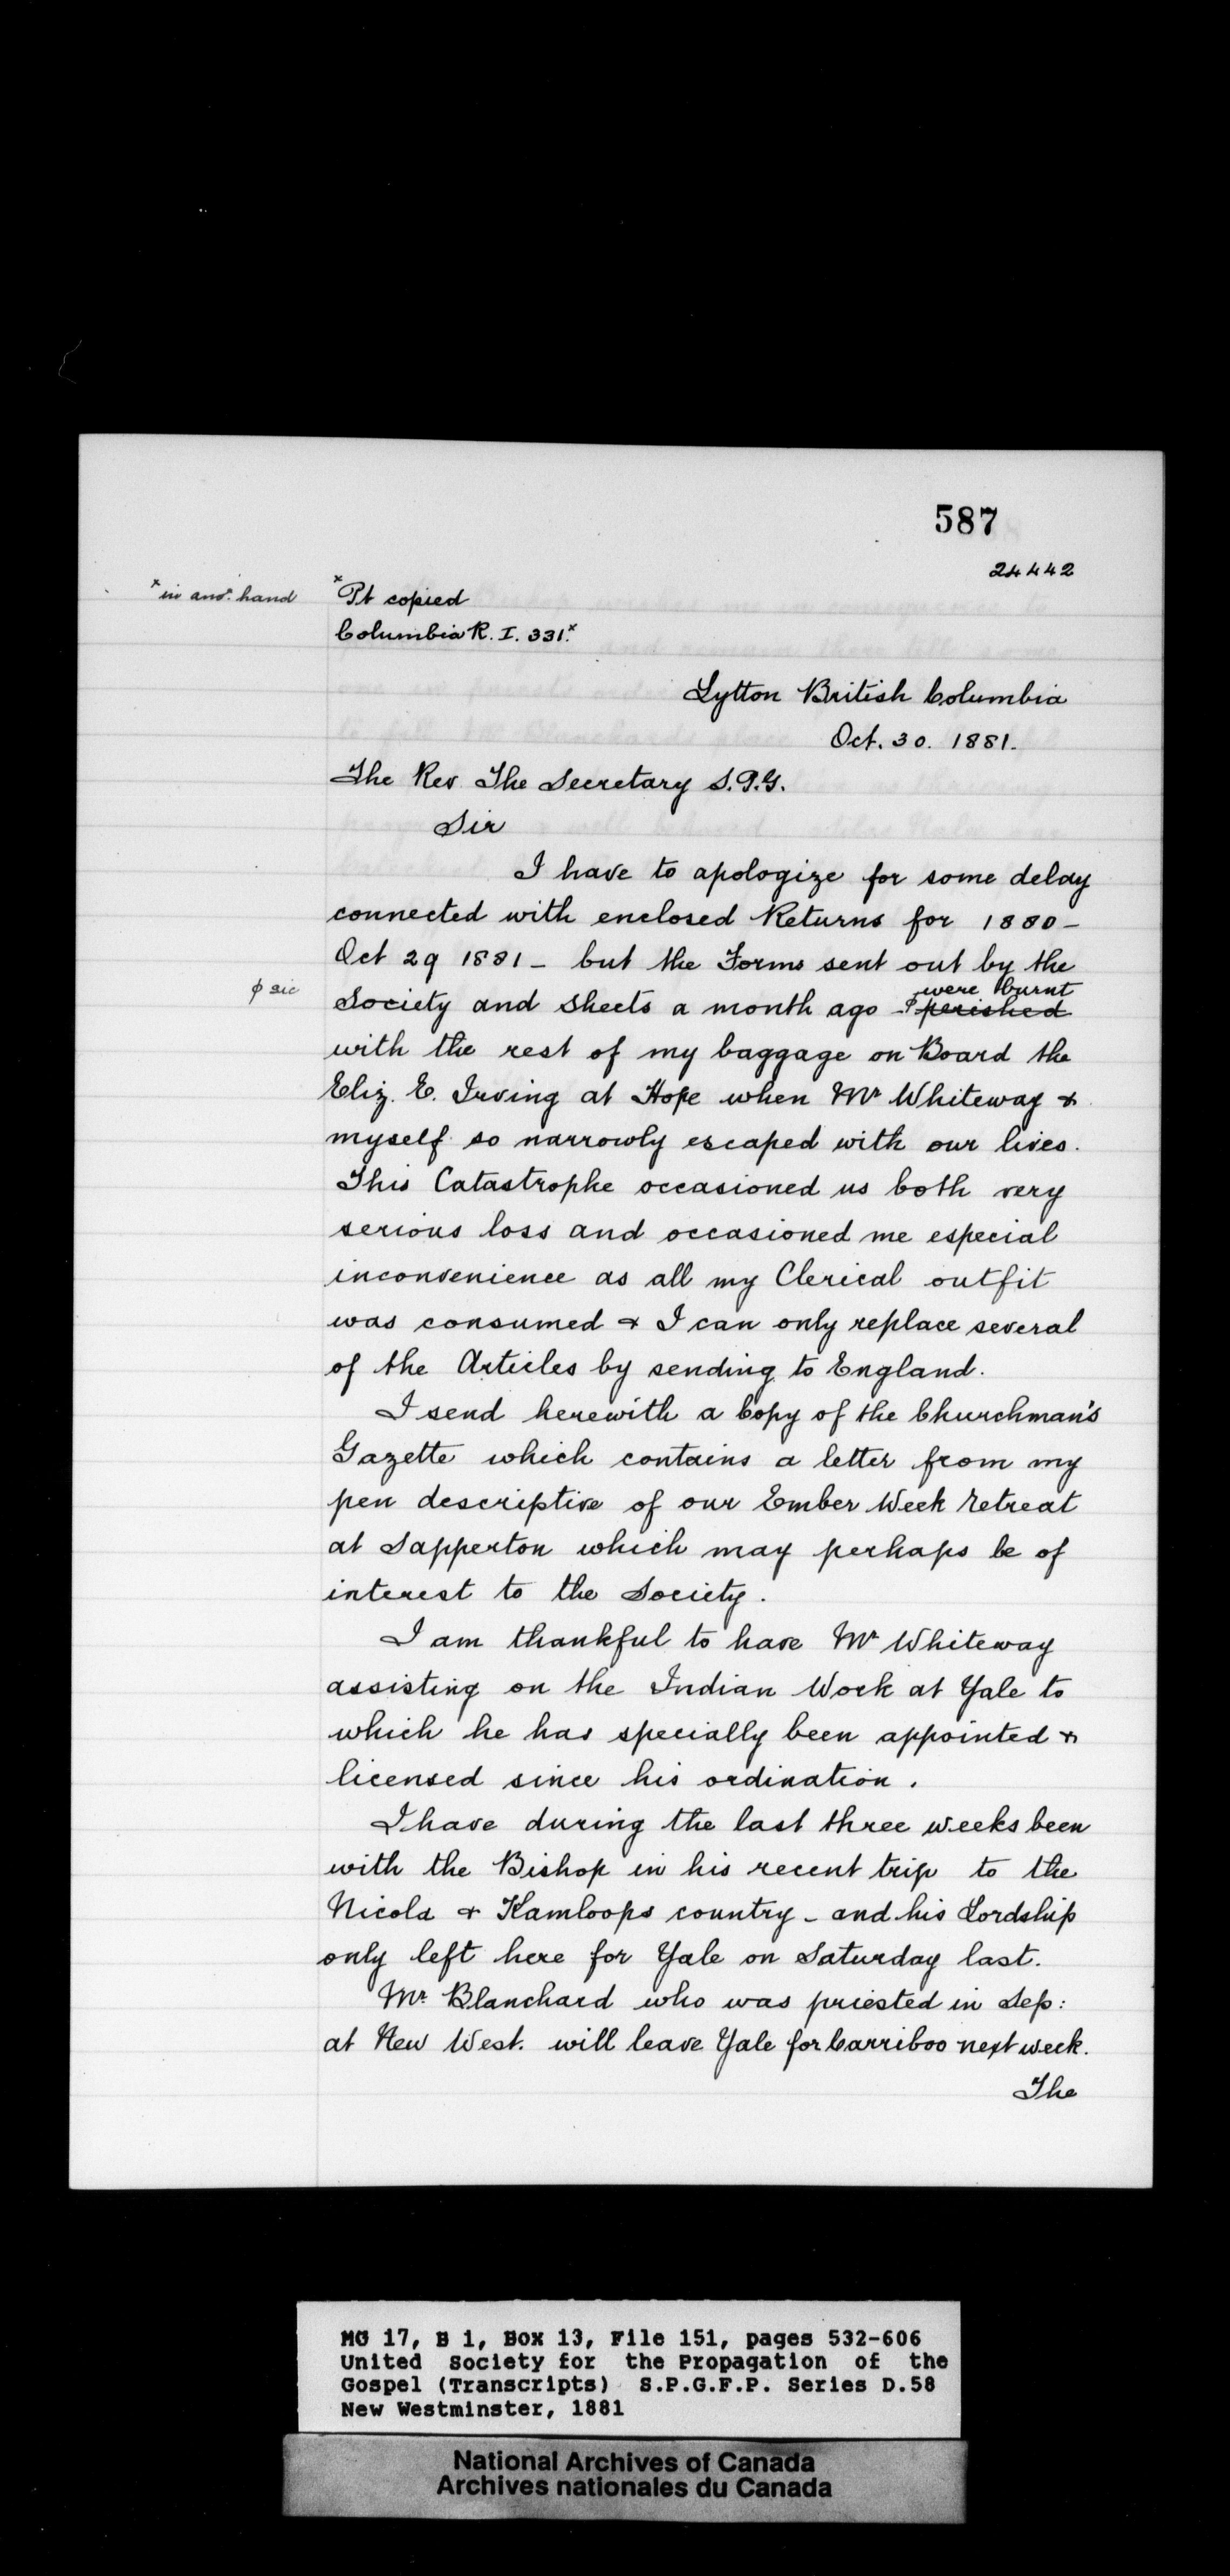 587
24442
x in anor. hand
x Pt copied
Columbia R. I. 331. x
Lytton British Columbia
Oct. 30. 1881.
The Rev The Secretary S.P.G.
Sir
I have to apologize for some delay
connected with enclosed Returns for 1880 -
Oct 29 1881 - but the Forms sent out by the
were burnt
ϕ sic
Society and sheets a month ago - ϕ perished
with the rest of my baggage on Board the
Eliz. E. Irving at Hope when Mr Whiteway &
myself so narrowly escaped with our lives.
This Catastrophe occasioned us both very
serious loss and occasioned me especial
inconvenience as all my Clerical outfit
was consumed & I can only replace several
of the Articles by sending to England.
I send herewith a Copy of the Churchman's
Gazette which contains a letter from my
pen descriptive of our Ember Week retreat
at Sapperton which may perhaps be of
interest to the Society.
I am thankful to have Mr Whiteway
assisting on the Indian Work at Yale to
which he has specially been appointed &
licensed since his ordination.
I have during the last three weeks been
with the Bishop in his recent trip to the
Nicola & Kamloops country - and his Lordship
only left here for Yale on Saturday last.
Mr. Blanchard who was priested in Sep:
at New West. will leave Yale for Carriboo next week.
The
MG 17, B 1, Box 13, File 151, pages 532-606
United Society for the Propagation of the
Gospel (Transcripts) S.P.G.F.P. Series D.58
New Westminster, 1881
National Archives of Canada
Archives nationales du Canada